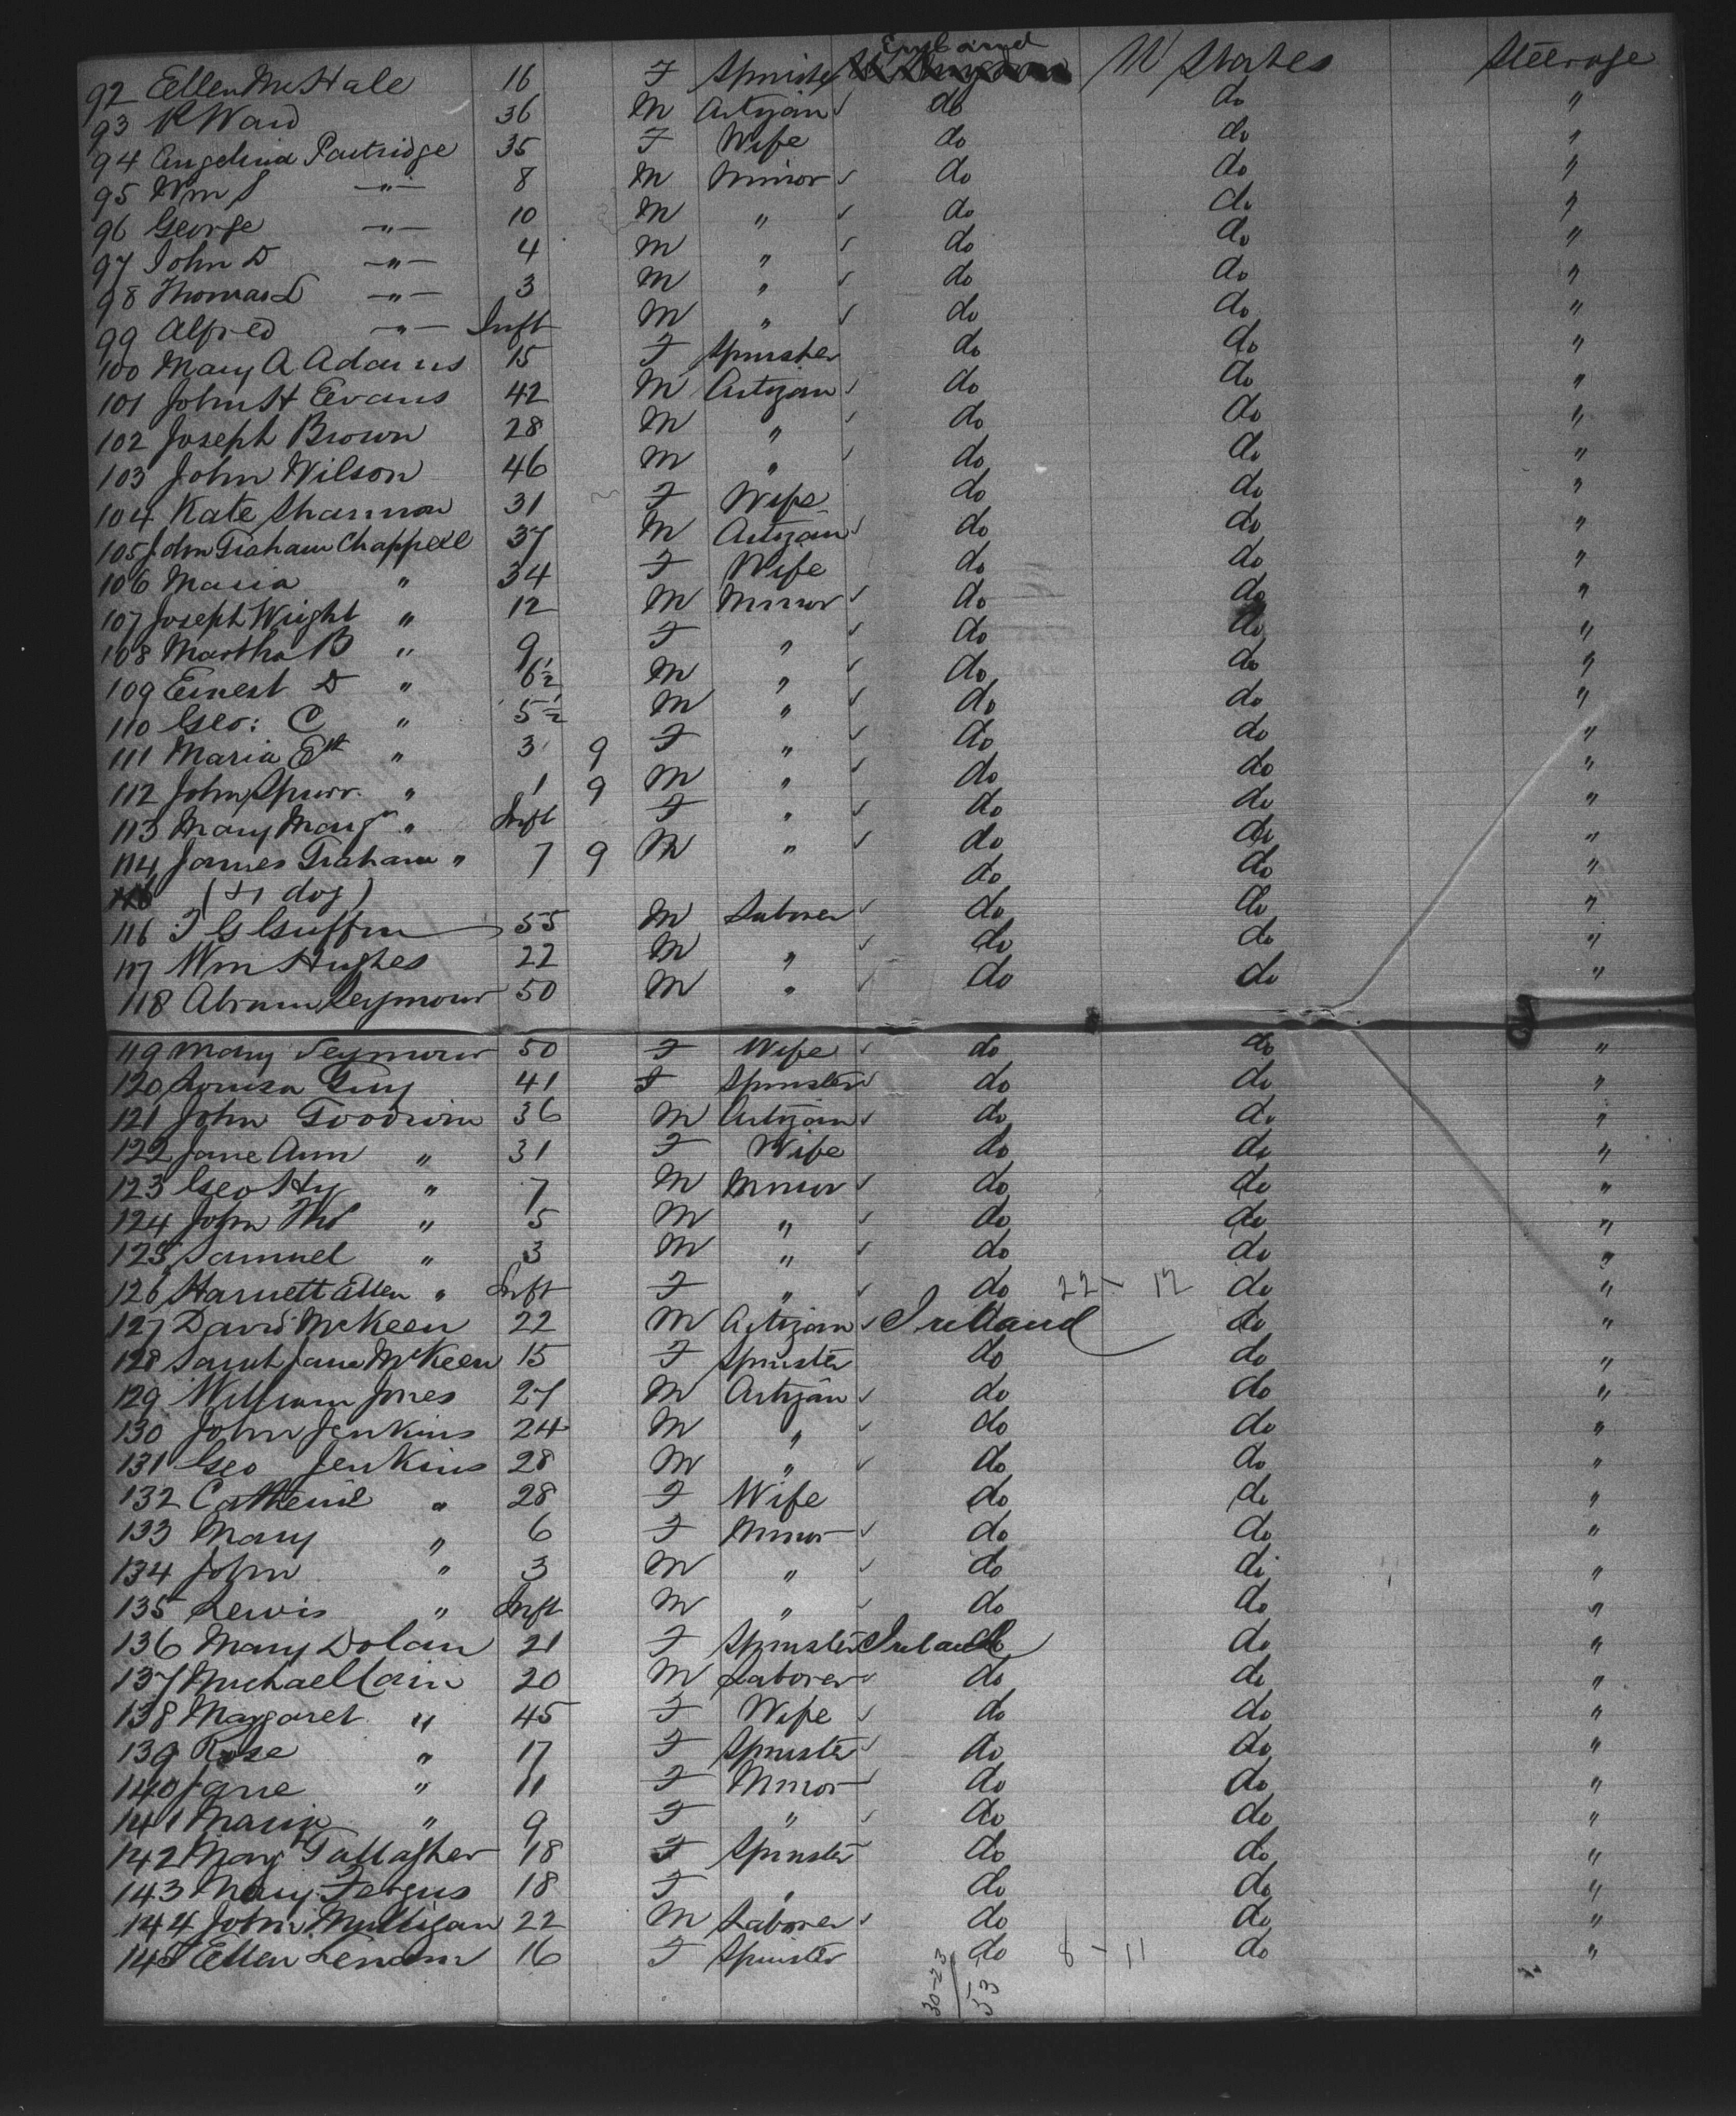 92 Ellen McHale 16 F Spinster England U States Steerage
93 R Ward 36 M Artizan ✓ do do "
94 Angelina Partridge 35 F Wife do do "
95 Wm S —"— 8 M Minor ✓ do do "
96 George —"— 10 M " ✓ do do "
97 John D —"— 4 M " ✓ do do "
98 Thomas L —"— 3 M " ✓ do do "
99 Alfred —"— Inft M " ✓ do do "
100 Mary A Adams 15 F Spinster do do "
101 John H Evans 42 M Artizan ✓ do do "
102 Joseph Brown 28 M " ✓ do do "
103 John Wilson 46 M " ✓ do do "
104 Kate Shannon 31 F Wife do do "
105 John Graham Chappell 37 M Artizan ✓ do do "
106 Maria " 34 F Wife do do "
107 Joseph Wright " 12 M Minor ✓ do do "
108 Martha B " 9 F " ✓ do do "
109 Ernest D " 6½ M " ✓ do do "
110 Geo: C " 5½ M " ✓ do do "
111 Maria Eth " 3 9 F " ✓ do do "
112 John Spurr " 1 9 M " ✓ do do "
113 Mary Marg " Inft F " ✓ do do "
114 James Graham " 7 9 M " ✓ do do "
(+1 dog) do do "
116 T G Griffin 55 M Laborer ✓ do do "
117 Wm Hughes 22 M " ✓ do do "
118 Abram Seymour 50 M " ✓ do do "
119 Mary Seymour 50 F Wife ✓ do do "
120 Louisa Guy 41 F Spinster ✓ do do "
121 John Goodwin 36 M Artizan ✓ do do "
122 Jane Ann " 31 F Wife do do "
123 Geo Hy " 7 M Minor ✓ do do "
124 John Ths " 5 M " ✓ do do "
125 Samuel " 3 M " ✓ do do "
126 Harriett Ellen " Inft F " ✓ do 22 - 12 do "
127 David McKeen 22 M Artizan ✓ Ireland do "
128 Sarah Jane McKeen 15 F Spinster do do "
129 William Jones 27 M Artizan ✓ do do "
130 John Jenkins 24 M " ✓ do do "
131 Geo Jenkins 28 M " ✓ do do "
132 Catherine " 28 F Wife do do "
133 Mary " 6 F Minor ✓ do do "
134 John " 3 M " ✓ do do "
135 Lewis " Inft M " ✓ do do "
136 Mary Dolan 21 F Spinster Ireland do "
137 Michael Cain 20 M Laborer ✓ do do "
138 Margaret " 45 F Wife ✓ do do "
139 Rose " 17 F Spinster ✓ do do "
140 Jane " 11 F Minor ✓ do do "
141 Maria " 9 F " ✓ do do "
142 Mary Gallagher 18 F Spinster do do "
143 Mary Fergus 18 F " do do "
144 John Mulligan 22 M Laborer ✓ do do "
145 Ellen 16 F Spinster do 8 - 11 do "
30-23
53